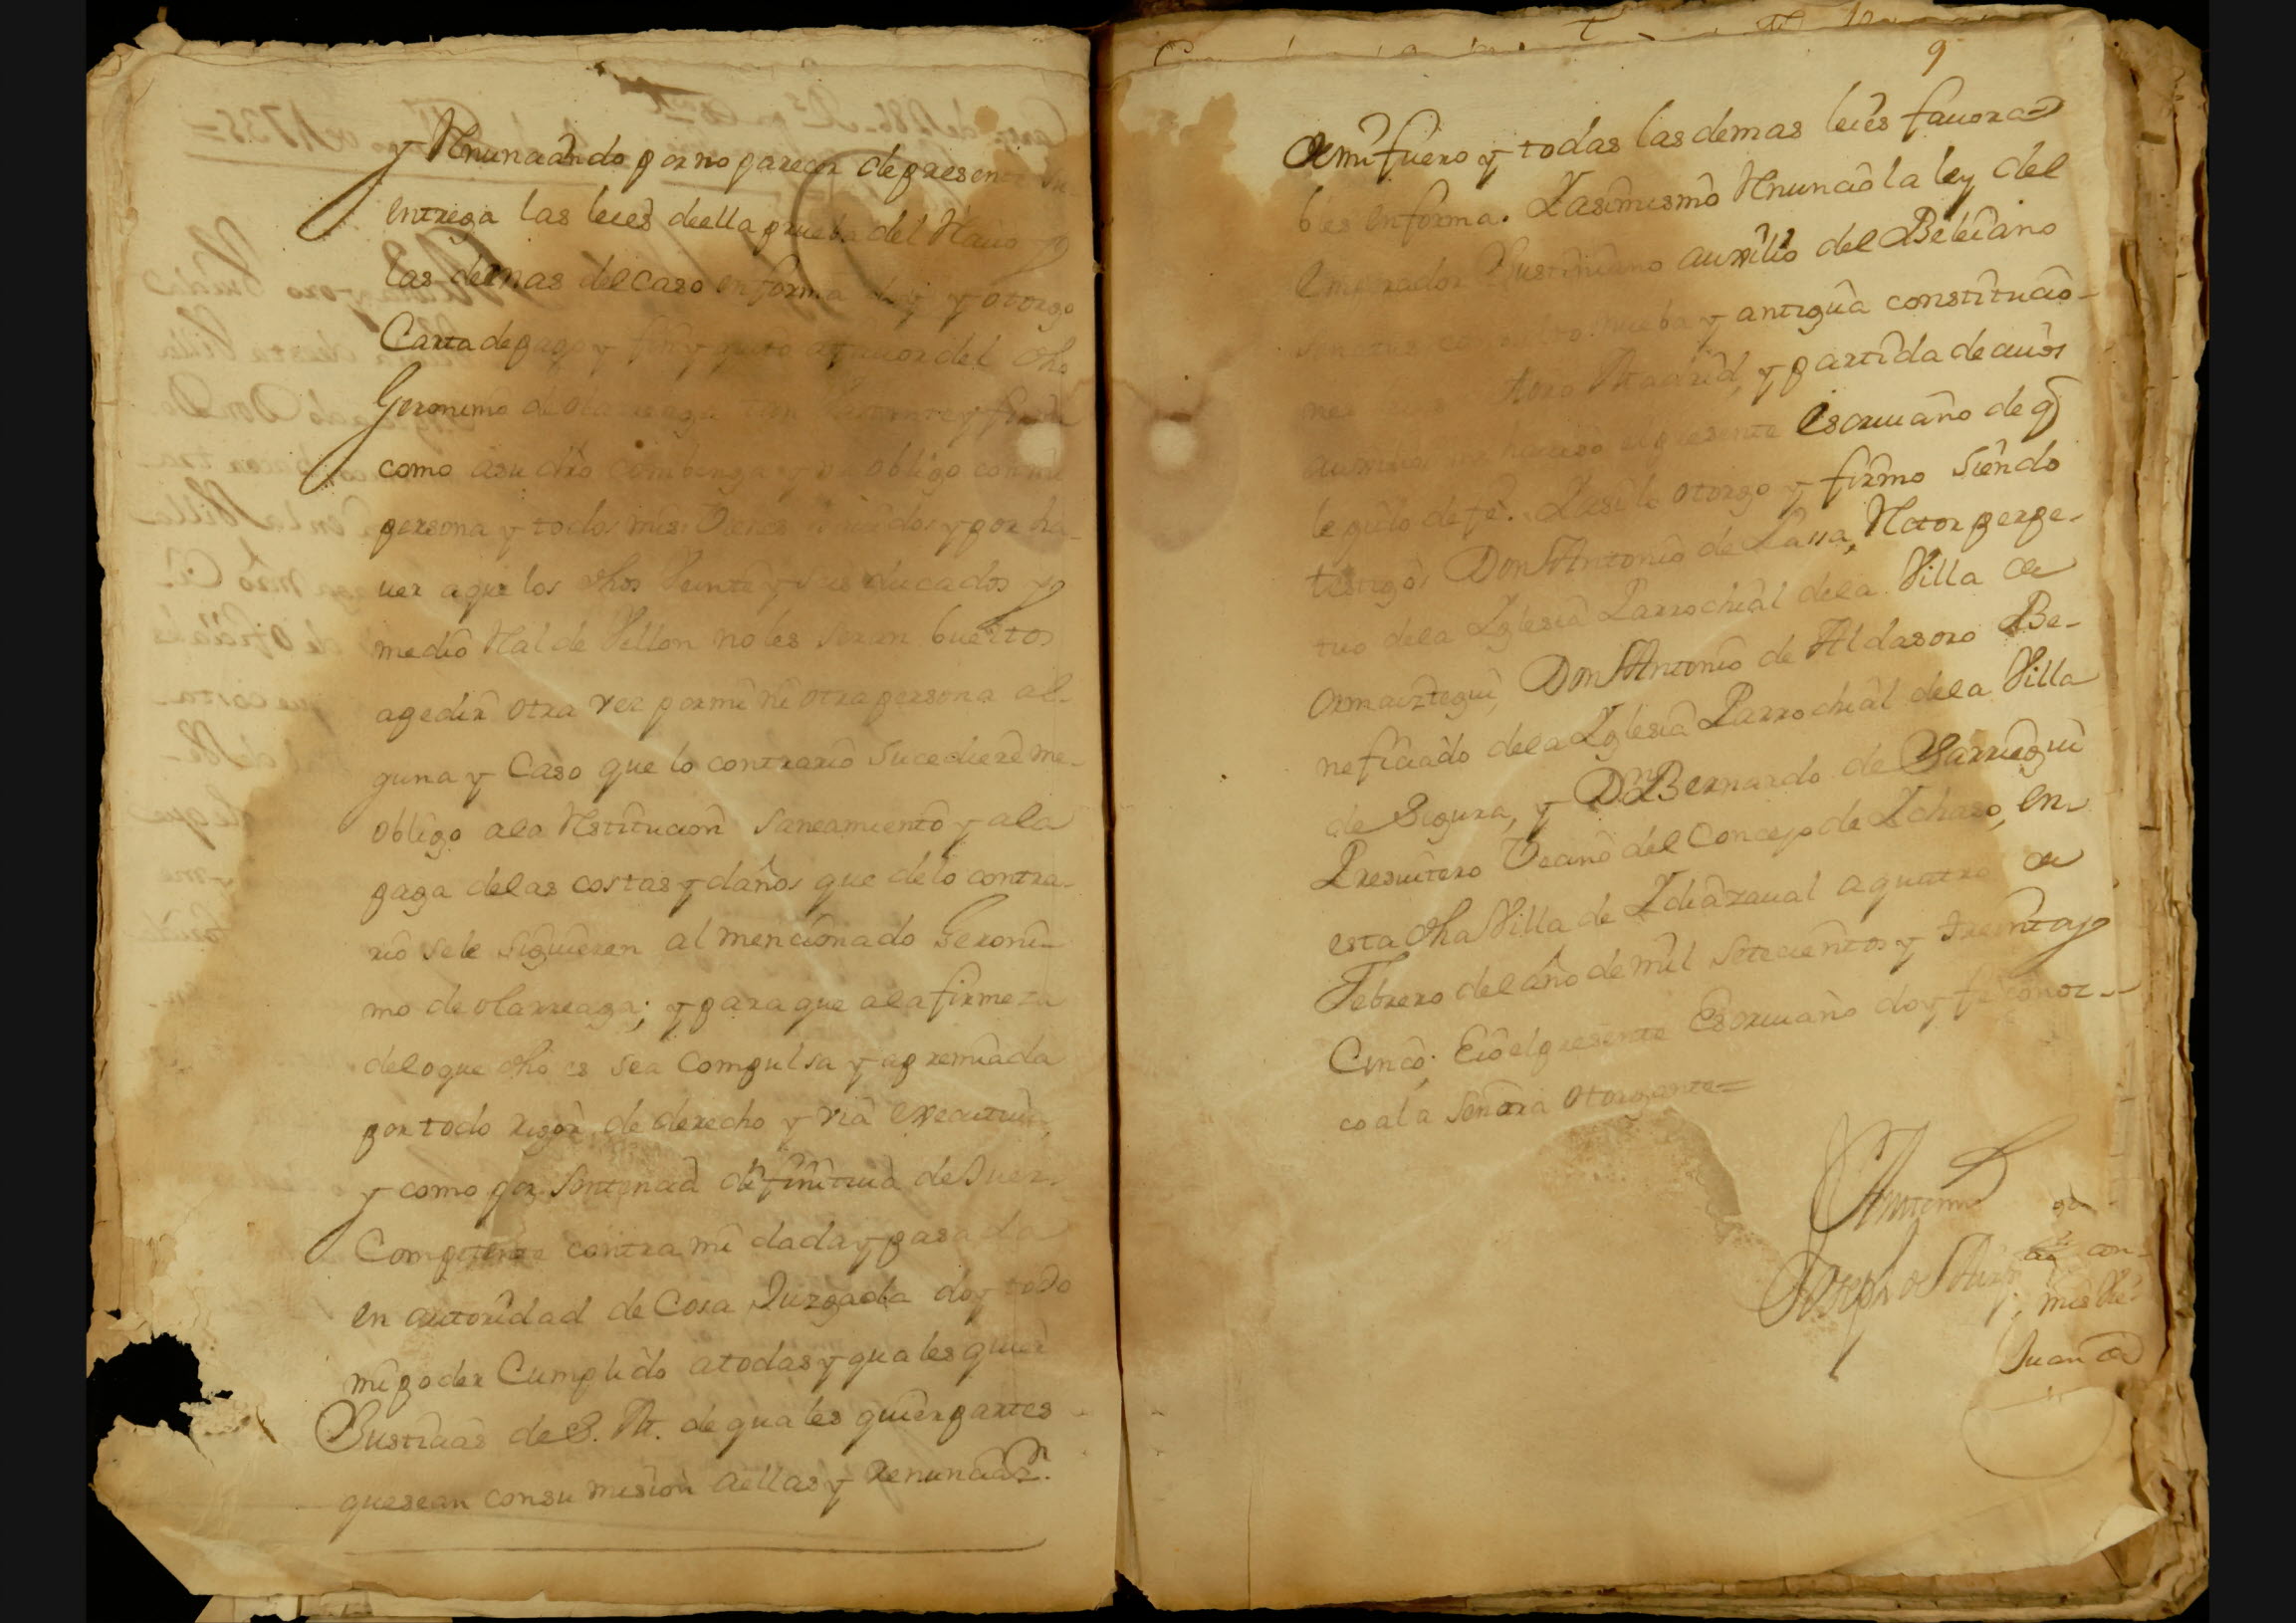 y Renunciando por no parecer de presente su
entrega las leies de ella prueba del Reciuo y
las demas del caso en forma doy y otorgo
Carta de pago y fin y quito a fauor del dho
Geronimo de olarreaga tan vastante y firme
como a su dro combenga y me obligo con mi
persona y todos mis Vienes hauidos y por ha-
uer a que los dhos Veinte y seis ducados y
medio Real de Vellon no les seran bueltos
a pedir otra vez por mi ni otra persona al-
guna y Caso que lo contrario sucediere me
obligo a la Restitucion saneamiento y a la
paga de las costas y daños que de lo contra-
rio se le siguieren al mencionado Geroni-
mo de olarreaga; y para que a la firmeza
de lo que dho es sea compulsa y apremiada
por todo rigor de derecho y via executiua,
y como por sentencia definitiua de Juez
Competente contra mi dada y pasada
en autoridad de Cosa Juzgada doy todo
mi poder Cumplido a todas y quales quier
Justicias de S. M. de quales quier partes
que sean con su mision a ellas y renunciazn.
9
de mi fuero y todas las demas leies fauora-
bles en forma. Y asimismo Renuncio la ley del
emperador Justiniano auxilio del Beleiano
senatus consulto nueba y antigua constitucio-
nes toro Madrid, y partida de cuios
auxilios me hauiso el presente escriuano de q
le pido de fe. Y asi lo otorgo y firmo siendo
testigos Don Antonio de Lassa, Retor perpe-
tuo de la Yglesia Parrochial de la Villa de
Ormaiztegui, Don Antonio de Aldasoro Be-
neficiado de la Yglesia Parrochial de la Villa
de Segura, y Dn Bernardo de Sarriegui
Presuitero Vecino del Concejo de Ychaso, en
esta dha Villa de Ydiazaual a quatro de
Febrero del año de mil setecientos y treinta y
Cinco. E io el presente Escriuano doy fe conoz-
co a la señora otorgante=
Antemi
Joseph de
con-
Juan de